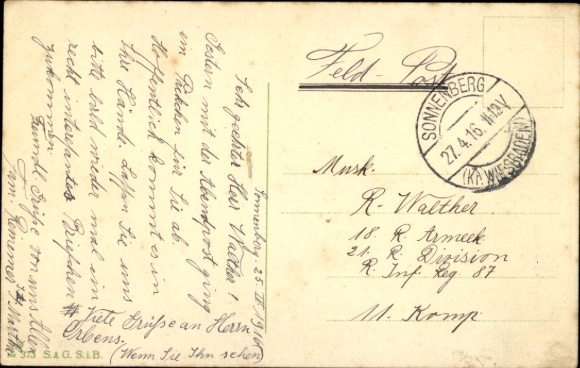 Sonnenberg, 25. IV 1916
Sehr geehrter Herr Walther!
Soeben mit der Abendpost ging
ein Päckchen für Sie ab.
Hoffentlich kommt es in
Ihre Hände. Lassen Sie uns
bitte bald wieder mal ein
recht interesantes Briefchen
zukommen
Freundl. Grüße von uns Allen
Fam. Reininger
Martha
# Viele Grüße an Herrn
Erbens.
(Wenn Sie Ihn sehen)
Feld-Post
SONNENBERG
27.4.16. 11-12V
(KR. WIESBADEN)
Musk.
R. Walther
18. R. Armeek
21. R. Division
R. Inf Reg 87
11. Komp
373 S.&G. S.i.B.